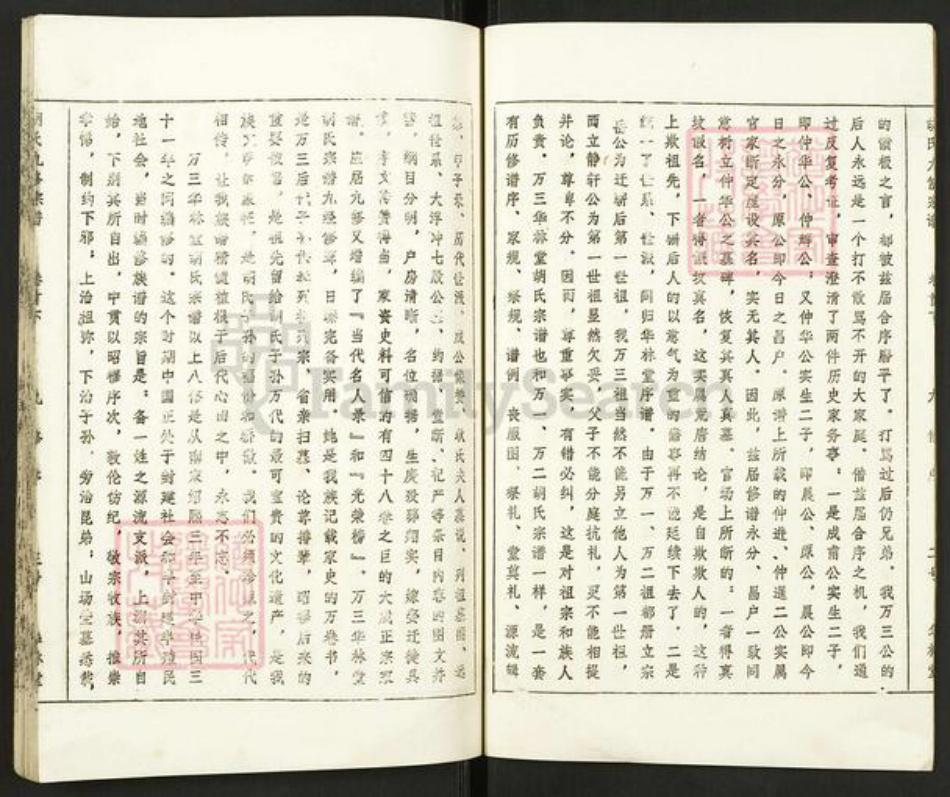 的偏极之言，都被兹届合序磨平了。打骂过后仍兄弟，我万三公的
后人永远是一个打不散骂不开的大家庭。借兹届合序之机，我们通
过反复考证，审查澄清了两件历史家务事：一是成甫公实生二子，
即仲华公、仲辉公；又仲华公实生二子，即晨公、原公，晨公即今
日之永分，原公即今日之昌户。原谱上所载的仲进、仲暹二公实属
官家断定虚设其名，实无其人。因此，兹届修谱永分、昌户一致同
意树立仲华公之墓碑，恢复其真人真墓。官场上所断的：一者得真
坟假名，一者得假坟真名，这实属荒唐结论，是自欺欺人的，这种
上欺祖先，下骗后人的以意气为重的憾事再不能延续下去了。二是
统一了世系、世派，同归华林堂序谱。由于万一、万二祖都册立宗
岳公为迁始后第一世祖，我万三祖当然不能另立他人为第一世祖，
而立静轩公为第一世祖显然欠妥，父子不能分庭抗礼，更不能相提
并论，尊卑不分。因而，尊重事实，有错必纠，这是对祖宗和族人
负责。万三华林堂胡氏宗谱也和万一、万二胡氏宗谱一样，是一套
有历修谱序、家规、祭规、谱例、丧服图、祭礼、堂奠礼、源流辑
历代世派、成公像赞、耿氏夫人墓说、列祖墓图、远
祖世系、大浮冲七殷公、约据、堂断、祀产等条目内容的图文并
纲目分明，户房清晰，名位确据，生庚殁葬翔实，嫁娶迁徙具
考文得当，家资史料可信的有四十八卷之巨的大成正宗宗
谱。应届九修又增编了『当代名人录』和『光荣榜』。万三华林堂
胡氏宗谱九经修葺，日臻完备实用，她是我族记载家史的万卷书，
是万三后代子孙代代列宗、省亲扫墓、论尊排辈，昭穆后来的
重要依据，是祖先留给胡氏子孙万代的最可宝贵的文化遗产，是我
族文明的象征，是胡氏子孙的福份和骄傲。我们必须珍惜之，代代
相传，让我族谱牒植根于后代心田之中，永志不忘。
万三华林堂胡氏宗谱以上八修是从南宋绍熙三年至中华民国三
十一年之间编修的。这个时期中国正处于封建社会和半封建半殖民
地社会，当时编修族谱的宗旨是：备一姓之源流支派，上溯其所自
始，下别其所自出，中贯以昭穆序次，敦伦饬纪，敬宗收族，推崇
孝悌，制约下邪；上治祖弥，下治子孙，旁治昆弟；山场茔墓悉载